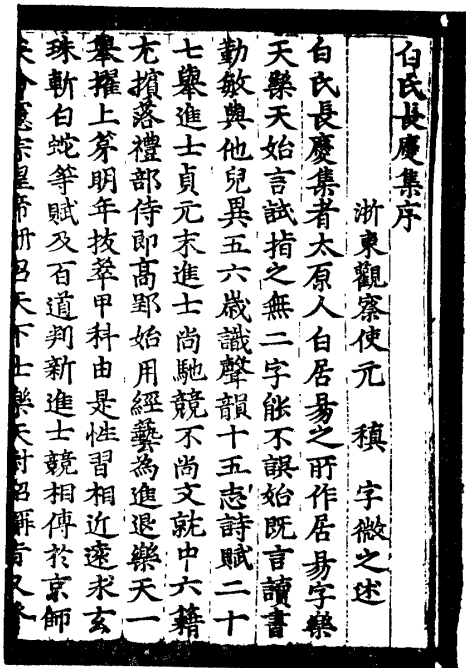 白氏長慶集序
浙東觀察使元 稹 字微之述
白氏長慶集者太原人白居易之所作居易字樂
天樂天始言試指之無二字能不誤始既言讀書
勤敏與他兒異五六歲識聲韻十五志詩賦二十
七舉進士貞元末進士尚馳競不尚文就中六籍
尤擯落禮部侍郎高郢始用經藝為進退樂天一
舉擢上第明年拔萃甲科由是性習相近遠求玄
珠斬白蛇等賦及百道判新進士競相傳於京師
矣會憲宗皇帝冊召天下士樂天對詔稱旨又登